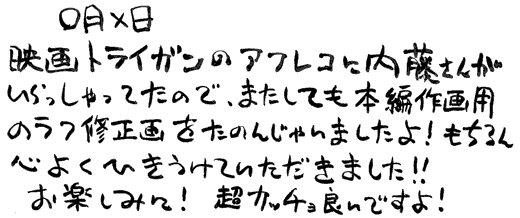 〇月×日
映画トライガンのアフレコに内藤さんが
いらっしゃってたので、またしても本編作画用
のラフ修正画をたのんじゃいましたよ！もちろん
心よくひきうけていただきました！！
お楽しみに！ 超カッチョ良いですよ！